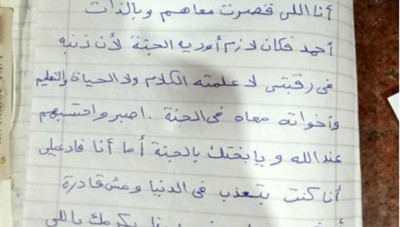 أنا اللى قصرت معاهم وبالذات
أحمد فكان لازم أوديه الجنة لأن ذنبه
فى رقبتى لا علمته الكلام ولا الحياة والتعليم
وأخواته معاه فى الجنة . اصبر واحتسبهم
عند الله ويابختك بالجنة أما أنا فادعيلى
أنا كنت بتعذب فى الدنيا ومش قادرة